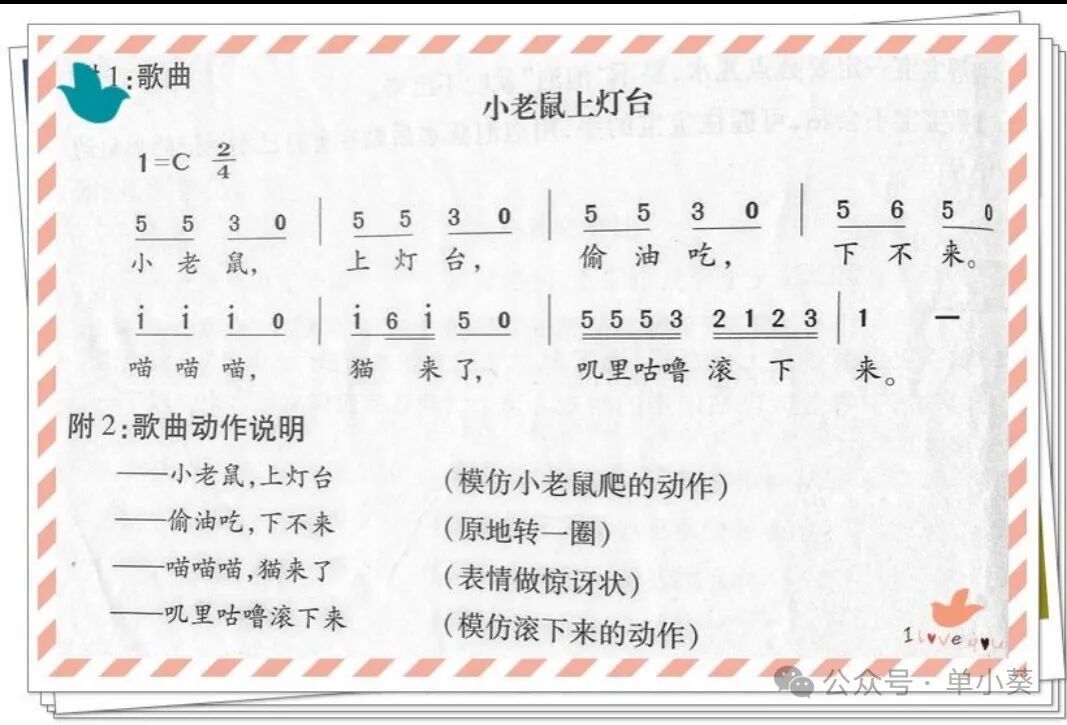 1:歌曲
小老鼠上灯台
1=C 2/4
5 5 3 0 | 5 5 3 0 | 5 5 3 0 | 5 6 5 0
小 老 鼠, 上 灯 台, 偷 油 吃, 下 不 来。
i i i 0 | i 6 i 5 0 | 5 5 5 3 2 1 2 3 | 1 —
喵 喵 喵, 猫 来 了, 叽里咕噜 滚 下 来。
附2:歌曲动作说明
——小老鼠,上灯台 (模仿小老鼠爬的动作)
——偷油吃,下不来 (原地转一圈)
——喵喵喵,猫来了 (表情做惊讶状)
——叽里咕噜滚下来 (模仿滚下来的动作)
I love you
公众号·单小葵